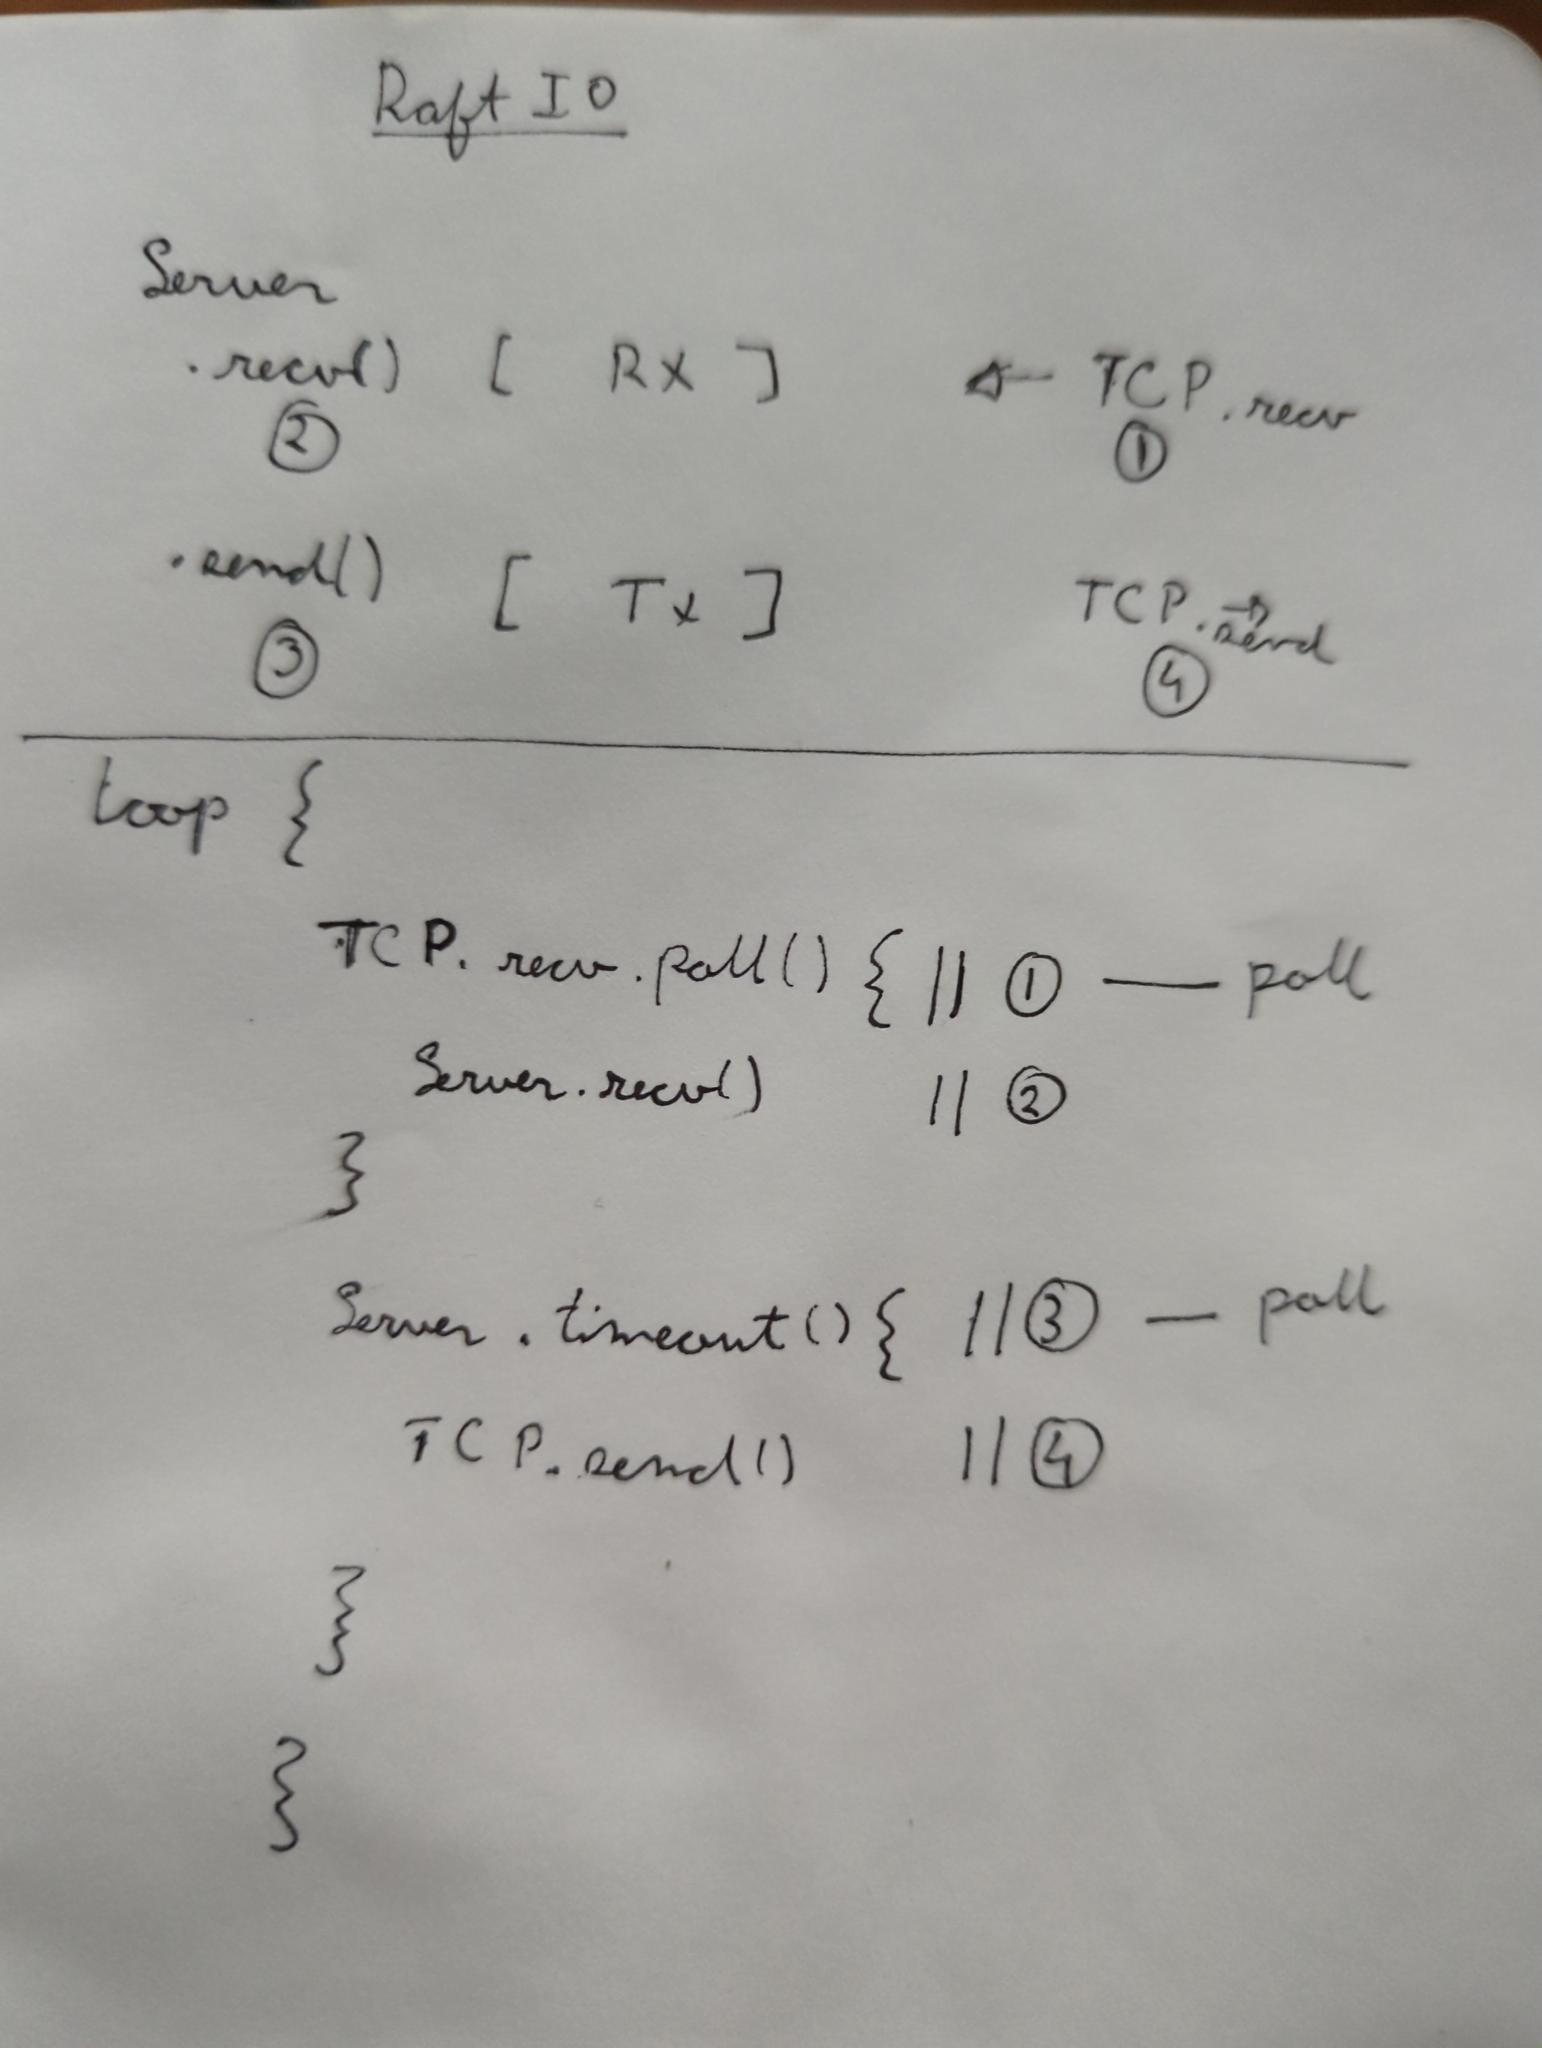 Raft IO
Server
.recv() [ RX ] ← TCP.recv
② ①
.send() [ Tx ] TCP.send →
③ ④
Loop {
TCP.recv.poll() { // ① — poll
Server.recv() // ②
}
Server.timeout() { // ③ — poll
TCP.send() // ④
}
}